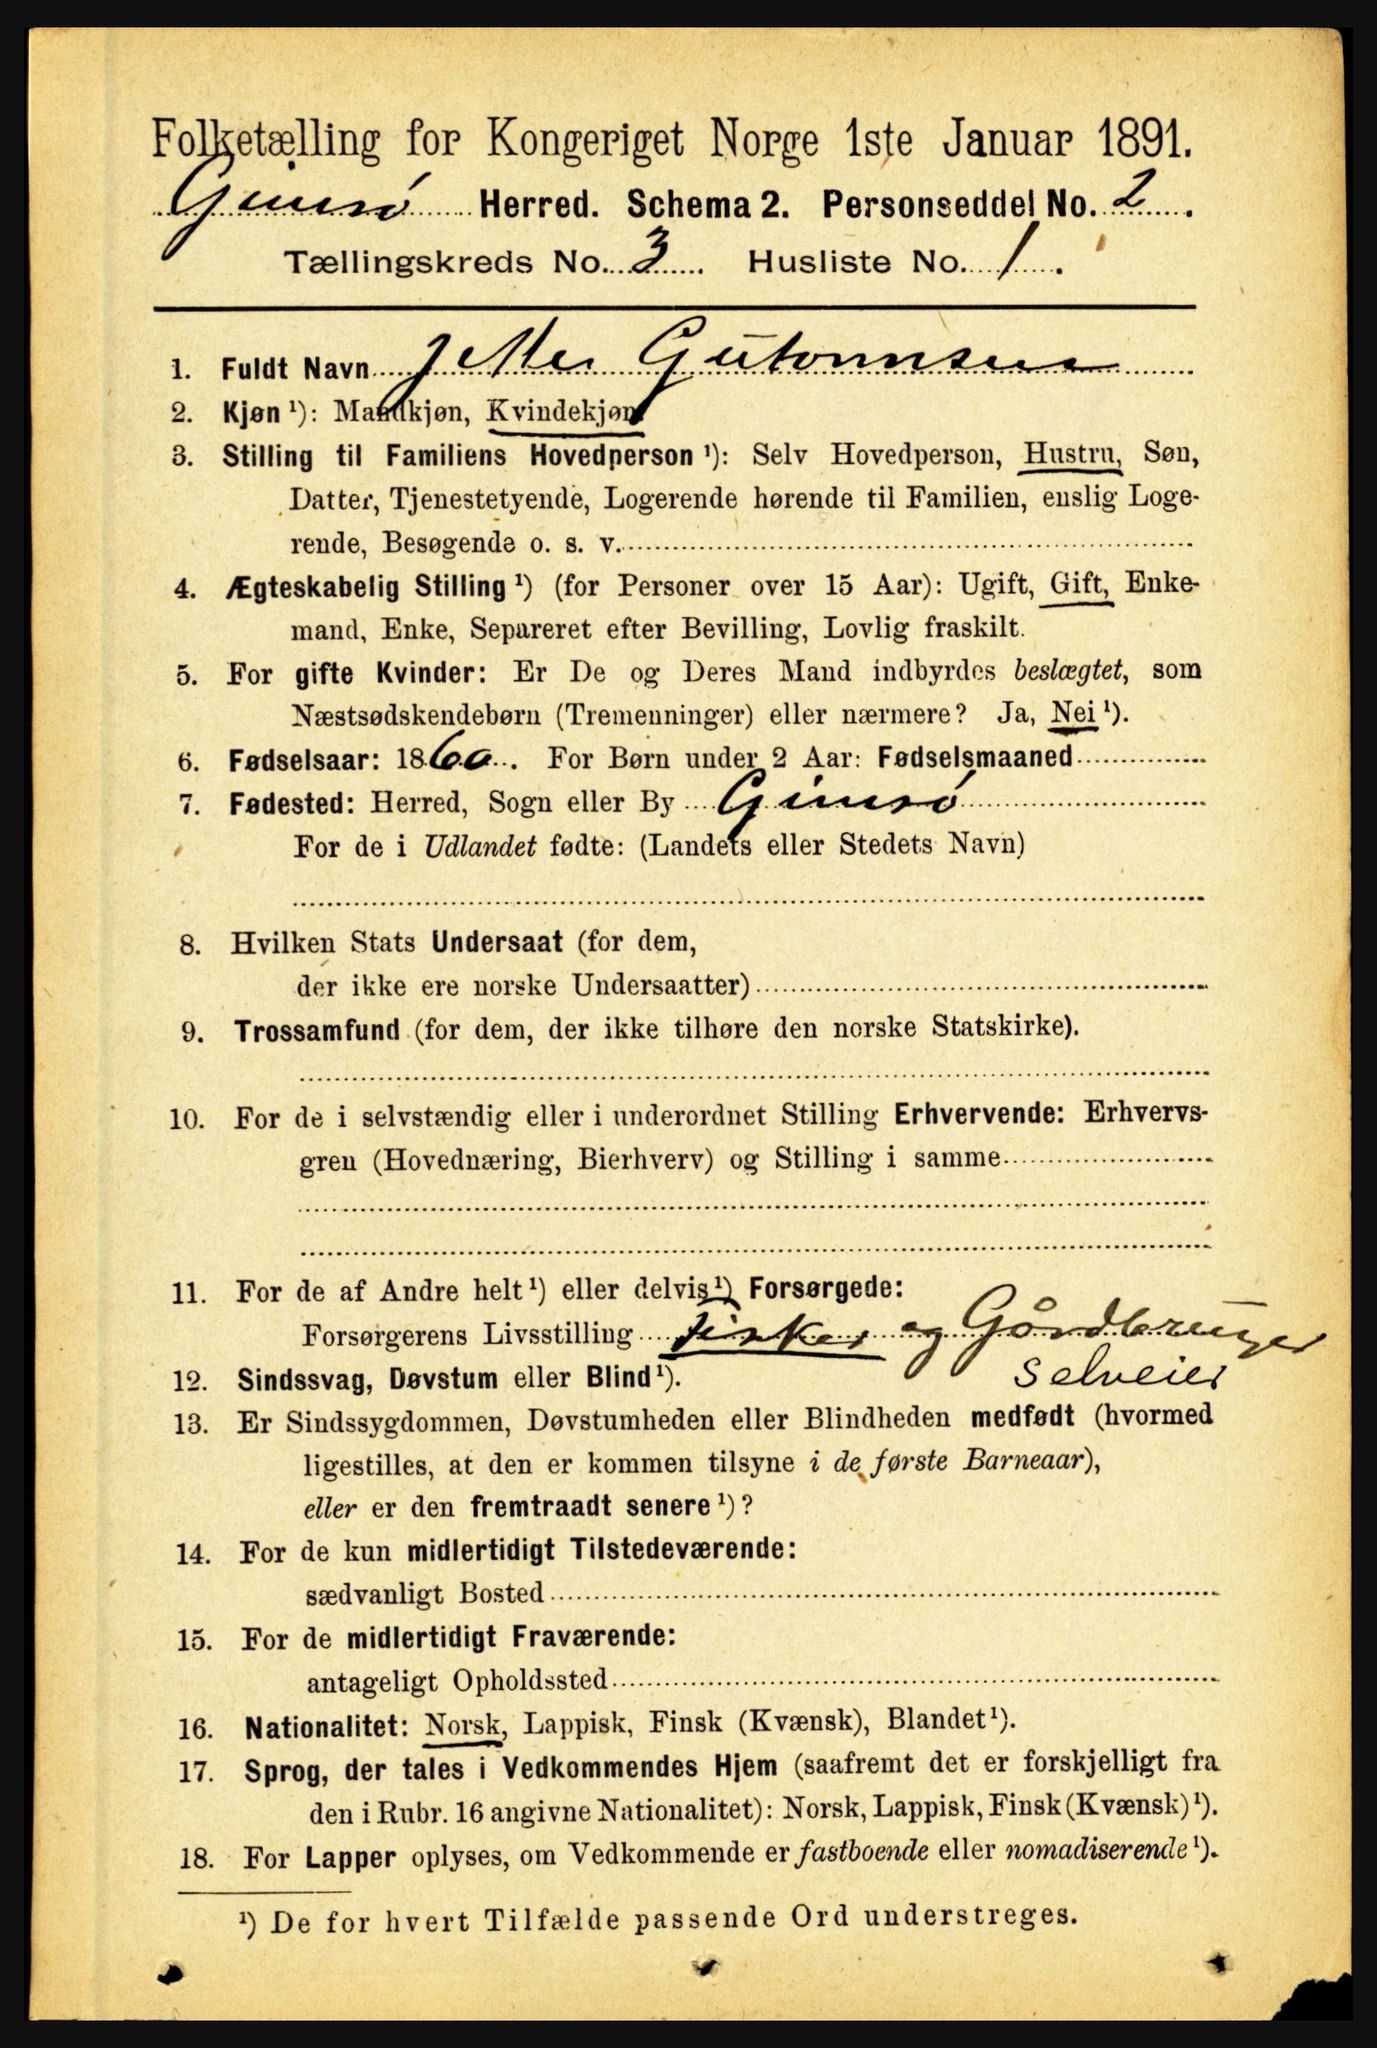 Folketælling for Kongeriget Norge 1ste Januar 1891.
Gimsø Herred. Schema 2. Personseddel No. 2.
Tællingskreds No. 3. Husliste No. 1.
1. Fuldt Navn
2. Kjøn ¹): Mandkjøn, Kvindekjøn
3. Stilling til Familiens Hovedperson ¹): Selv Hovedperson, Hustru, Søn,
Datter, Tjenestetyende, Logerende hørende til Familien, enslig Loge-
rende, Besøgende o. s. v.
4. Ægteskabelig Stilling ¹) (for Personer over 15 Aar): Ugift, Gift, Enke-
mand, Enke, Separeret efter Bevilling, Lovlig fraskilt.
5. For gifte Kvinder: Er De og Deres Mand indbyrdes beslægtet, som
Næstsødskendebørn (Tremenninger) eller nærmere? Ja, Nei ¹).
6. Fødselsaar: 1860. For Børn under 2 Aar: Fødselsmaaned
7. Fødested: Herred, Sogn eller By Gimsø
For de i Udlandet fødte: (Landets eller Stedets Navn)
8. Hvilken Stats Undersaat (for dem,
der ikke ere norske Undersaatter)
9. Trossamfund (for dem, der ikke tilhøre den norske Statskirke).
10. For de i selvstændig eller i underordnet Stilling Erhvervende: Erhvervs-
gren (Hovednæring, Bierhverv) og Stilling i samme
11. For de af Andre helt ¹) eller delvis ¹) Forsørgede:
Forsørgerens Livsstilling Fisker og Gårdbruger
Selveier
12. Sindssvag, Døvstum eller Blind ¹).
13. Er Sindssygdommen, Døvstumheden eller Blindheden medfødt (hvormed
ligestilles, at den er kommen tilsyne i de første Barneaar),
eller er den fremtraadt senere ¹)?
14. For de kun midlertidigt Tilstedeværende:
sædvanligt Bosted
15. For de midlertidigt Fraværende:
antageligt Opholdssted
16. Nationalitet: Norsk, Lappisk, Finsk (Kvænsk), Blandet ¹).
17. Sprog, der tales i Vedkommendes Hjem (saafremt det er forskjelligt fra
den i Rubr. 16 angivne Nationalitet): Norsk, Lappisk, Finsk (Kvænsk) ¹).
18. For Lapper oplyses, om Vedkommende er fastboende eller nomadiserende ¹).
¹) De for hvert Tilfælde passende Ord understreges.